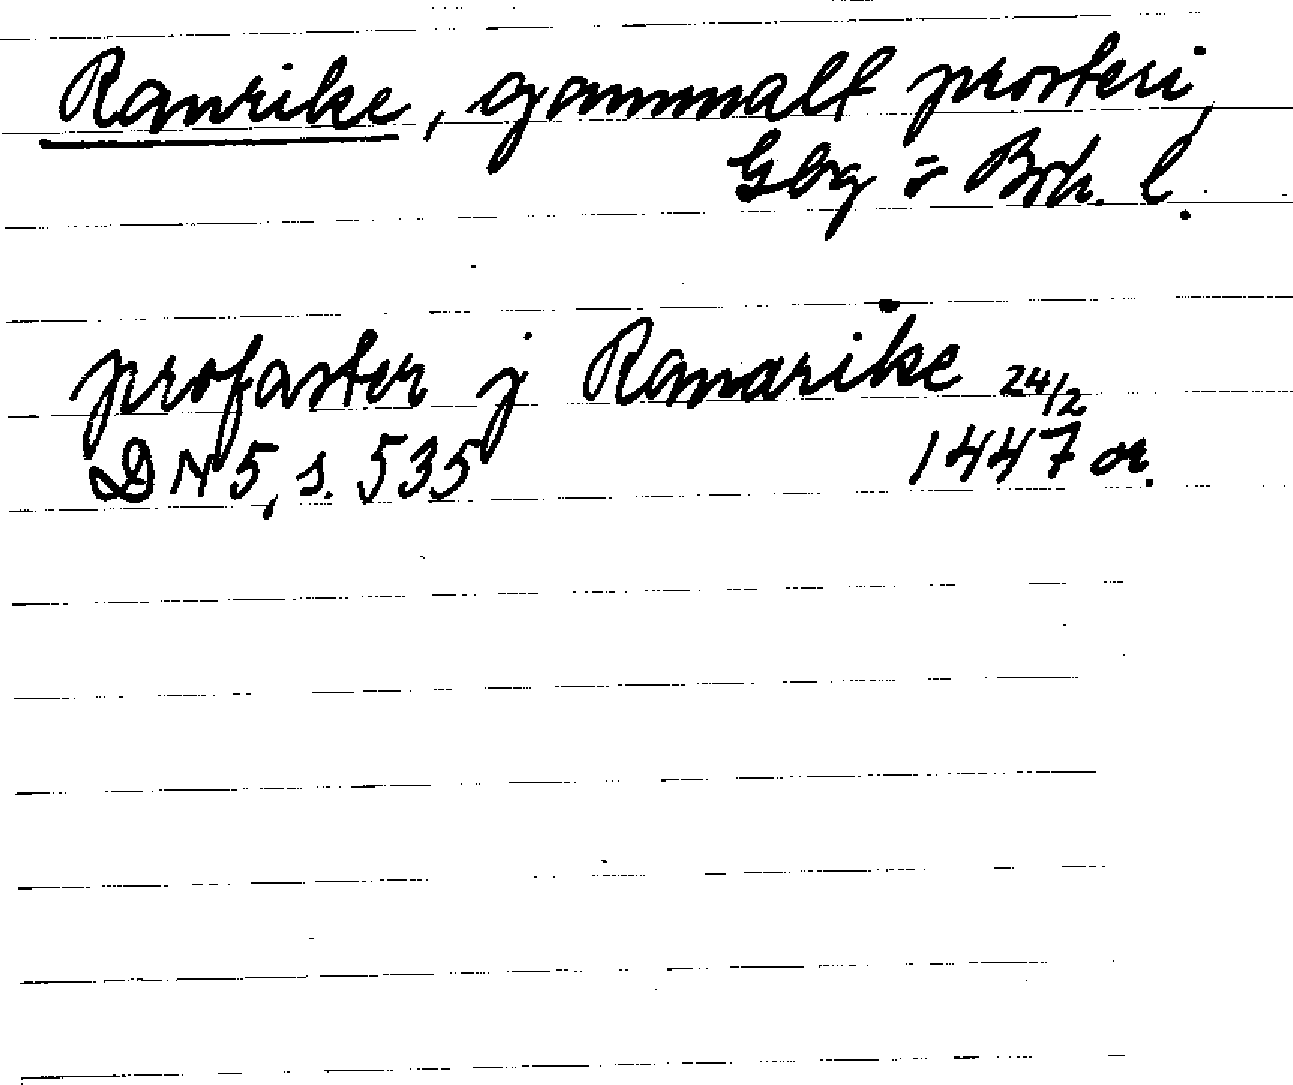 Ranrike, gammalt prosteri,
Gbg o Boh. l.
profaster j Ranarike 24/2
DN 5, s. 535 1447 or.